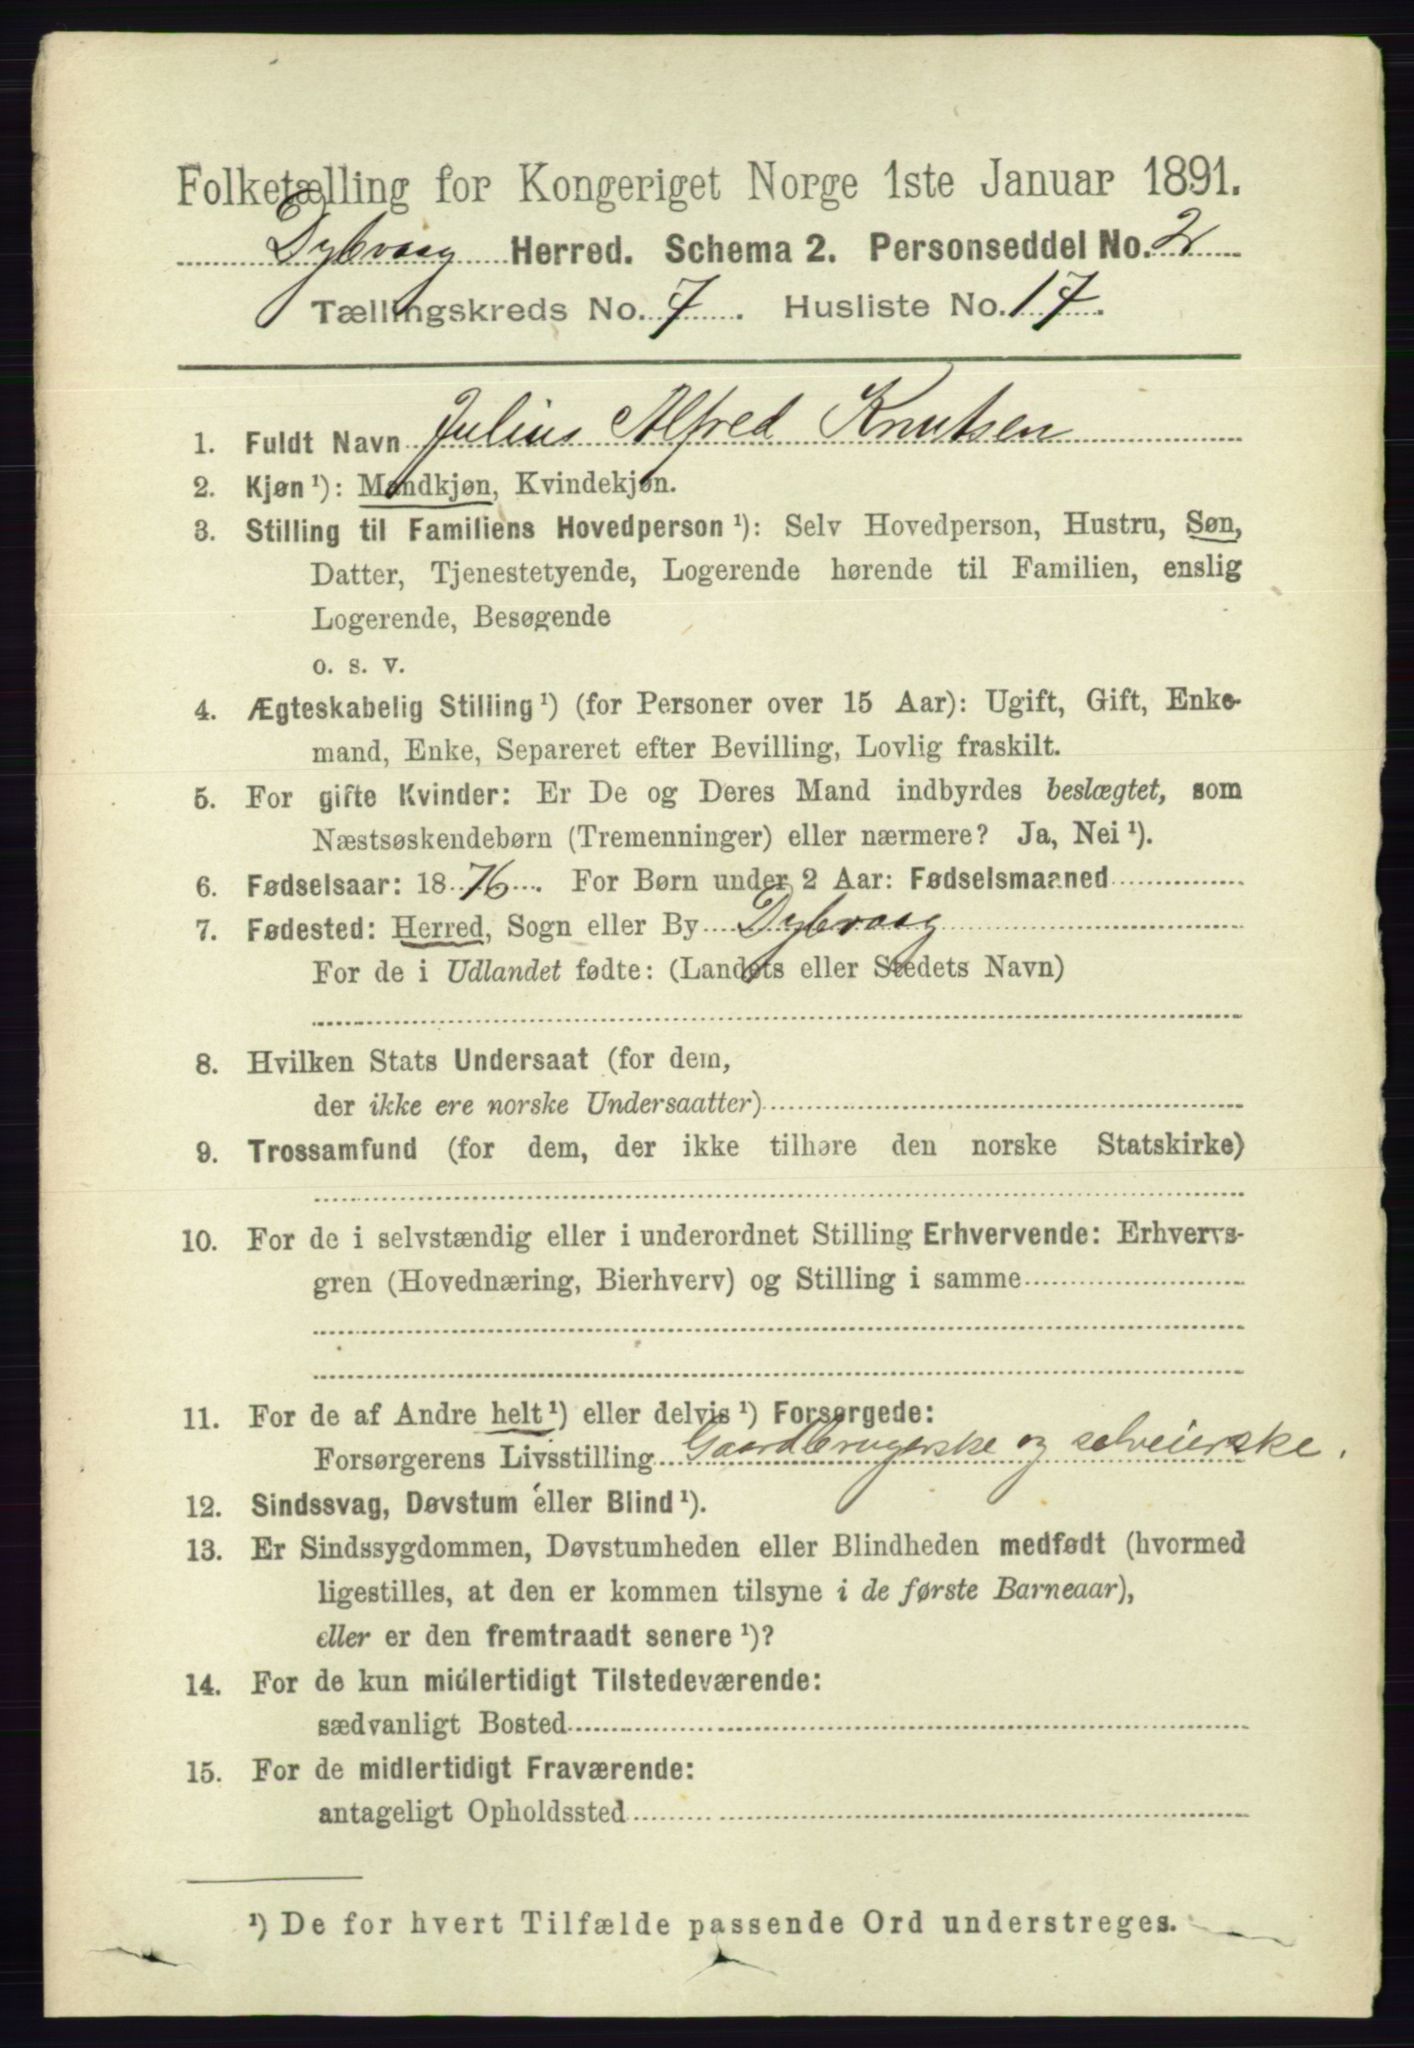 Folketælling for Kongeriget Norge 1ste Januar 1891.
Dybvaag Herred. Schema 2. Personseddel No. 2
Tællingskreds No. 7. Husliste No. 17.
1. Fuldt Navn Julius Alfred Knutsen
2. Kjøn ¹): Mandkjøn, Kvindekjøn.
3. Stilling til Familiens Hovedperson ¹): Selv Hovedperson, Hustru, Søn,
Datter, Tjenestetyende, Logerende hørende til Familien, enslig
Logerende, Besøgende
o. s. v.
4. Ægteskabelig Stilling ¹) (for Personer over 15 Aar): Ugift, Gift, Enke-
mand, Enke, Separeret efter Bevilling, Lovlig fraskilt.
5. For gifte Kvinder: Er De og Deres Mand indbyrdes beslægtet, som
Næstsøskendebørn (Tremenninger) eller nærmere? Ja, Nei ¹).
6. Fødselsaar: 1876. For Børn under 2 Aar: Fødselsmaaned
7. Fødested: Herred, Sogn eller By Dybvaag
For de i Udlandet fødte: (Landets eller Stedets Navn)
8. Hvilken Stats Undersaat (for dem,
der ikke ere norske Undersaatter)
9. Trossamfund (for dem, der ikke tilhøre den norske Statskirke)
10. For de i selvstændig eller i underordnet Stilling Erhvervende: Erhvervs-
gren (Hovednæring, Bierhverv) og Stilling i samme
11. For de af Andre helt ¹) eller delvis ¹) Forsørgede:
Forsørgerens Livsstilling Gaardbrugerske og selveierske.
12. Sindssvag, Døvstum eller Blind ¹).
13. Er Sindssygdommen, Døvstumheden eller Blindheden medfødt (hvormed
ligestilles, at den er kommen tilsyne i de første Barneaar),
eller er den fremtraadt senere ¹)?
14. For de kun midlertidigt Tilstedeværende:
sædvanligt Bosted
15. For de midlertidigt Fraværende:
antageligt Opholdssted
¹) De for hvert Tilfælde passende Ord understreges.